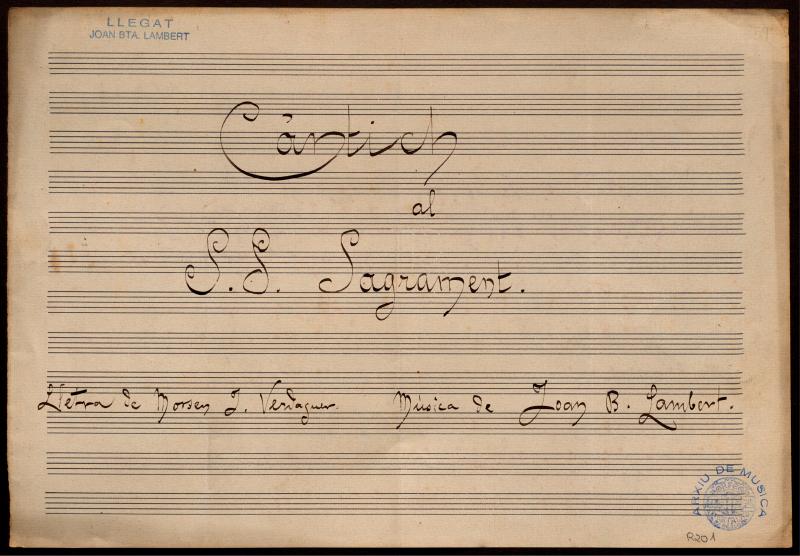 LLEGAT
JOAN BTA. LAMBERT
Càntich
al
S. S. Sagrament.
Lletra de Mossen J. Verdaguer. Música de Joan B. Lambert.
ARXIU DE MUSICA
R201